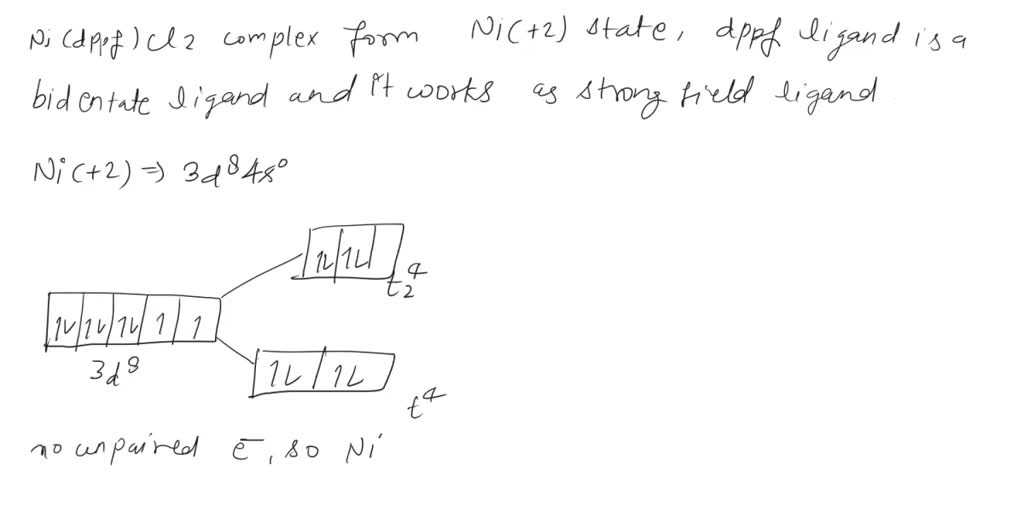 Ni(dppf)Cl2 complex form Ni(+2) state, dppf ligand is a
bidentate ligand and it works as strong field ligand
Ni(+2) ⇒ 3d⁸4s⁰
1L 1L
t₂⁴
1L 1L 1L 1 1
3d⁸
1L 1L
t⁴
no unpaired e⁻, so Ni